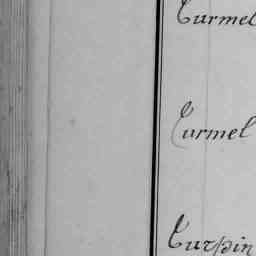 Turmel
Turmel
Turpin